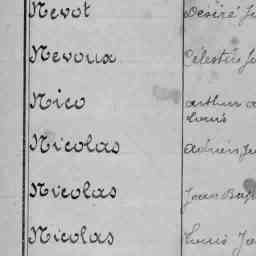 Nevot Désiré
Nevoux Célestin
Nico arthur
Louis
Nicolas adrien
Nicolas Jean
Nicolas Louis